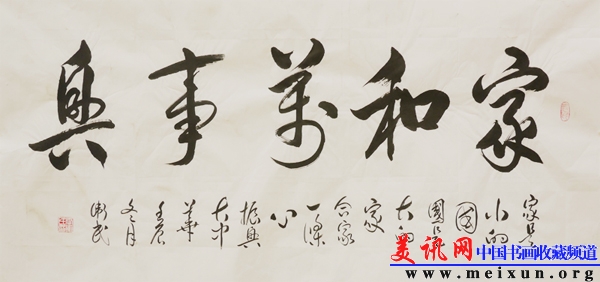 家和萬事興
家是
小的
國
國是
大的
家
合家
一條
心
振興
大中
華
壬辰
冬月
衛民
美讯网 中国书画收藏频道
www.meixun.org